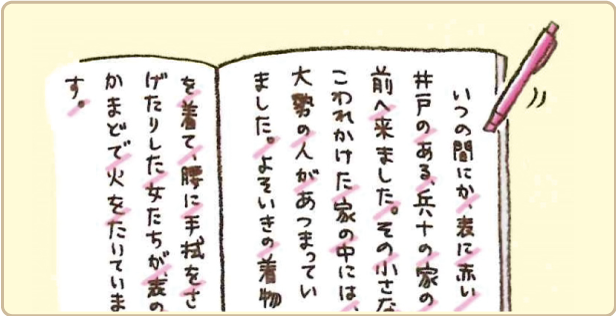 いつの間にか、表に赤い
井戸のある、兵十の家の
前へ来ました。その小さな
こわれかけた家の中には、
大勢の人があつまってい
ました。よそいきの着物
を着て、腰に手拭をさ
げたりした女たちが、表の
かまどで火をたいていま
す。